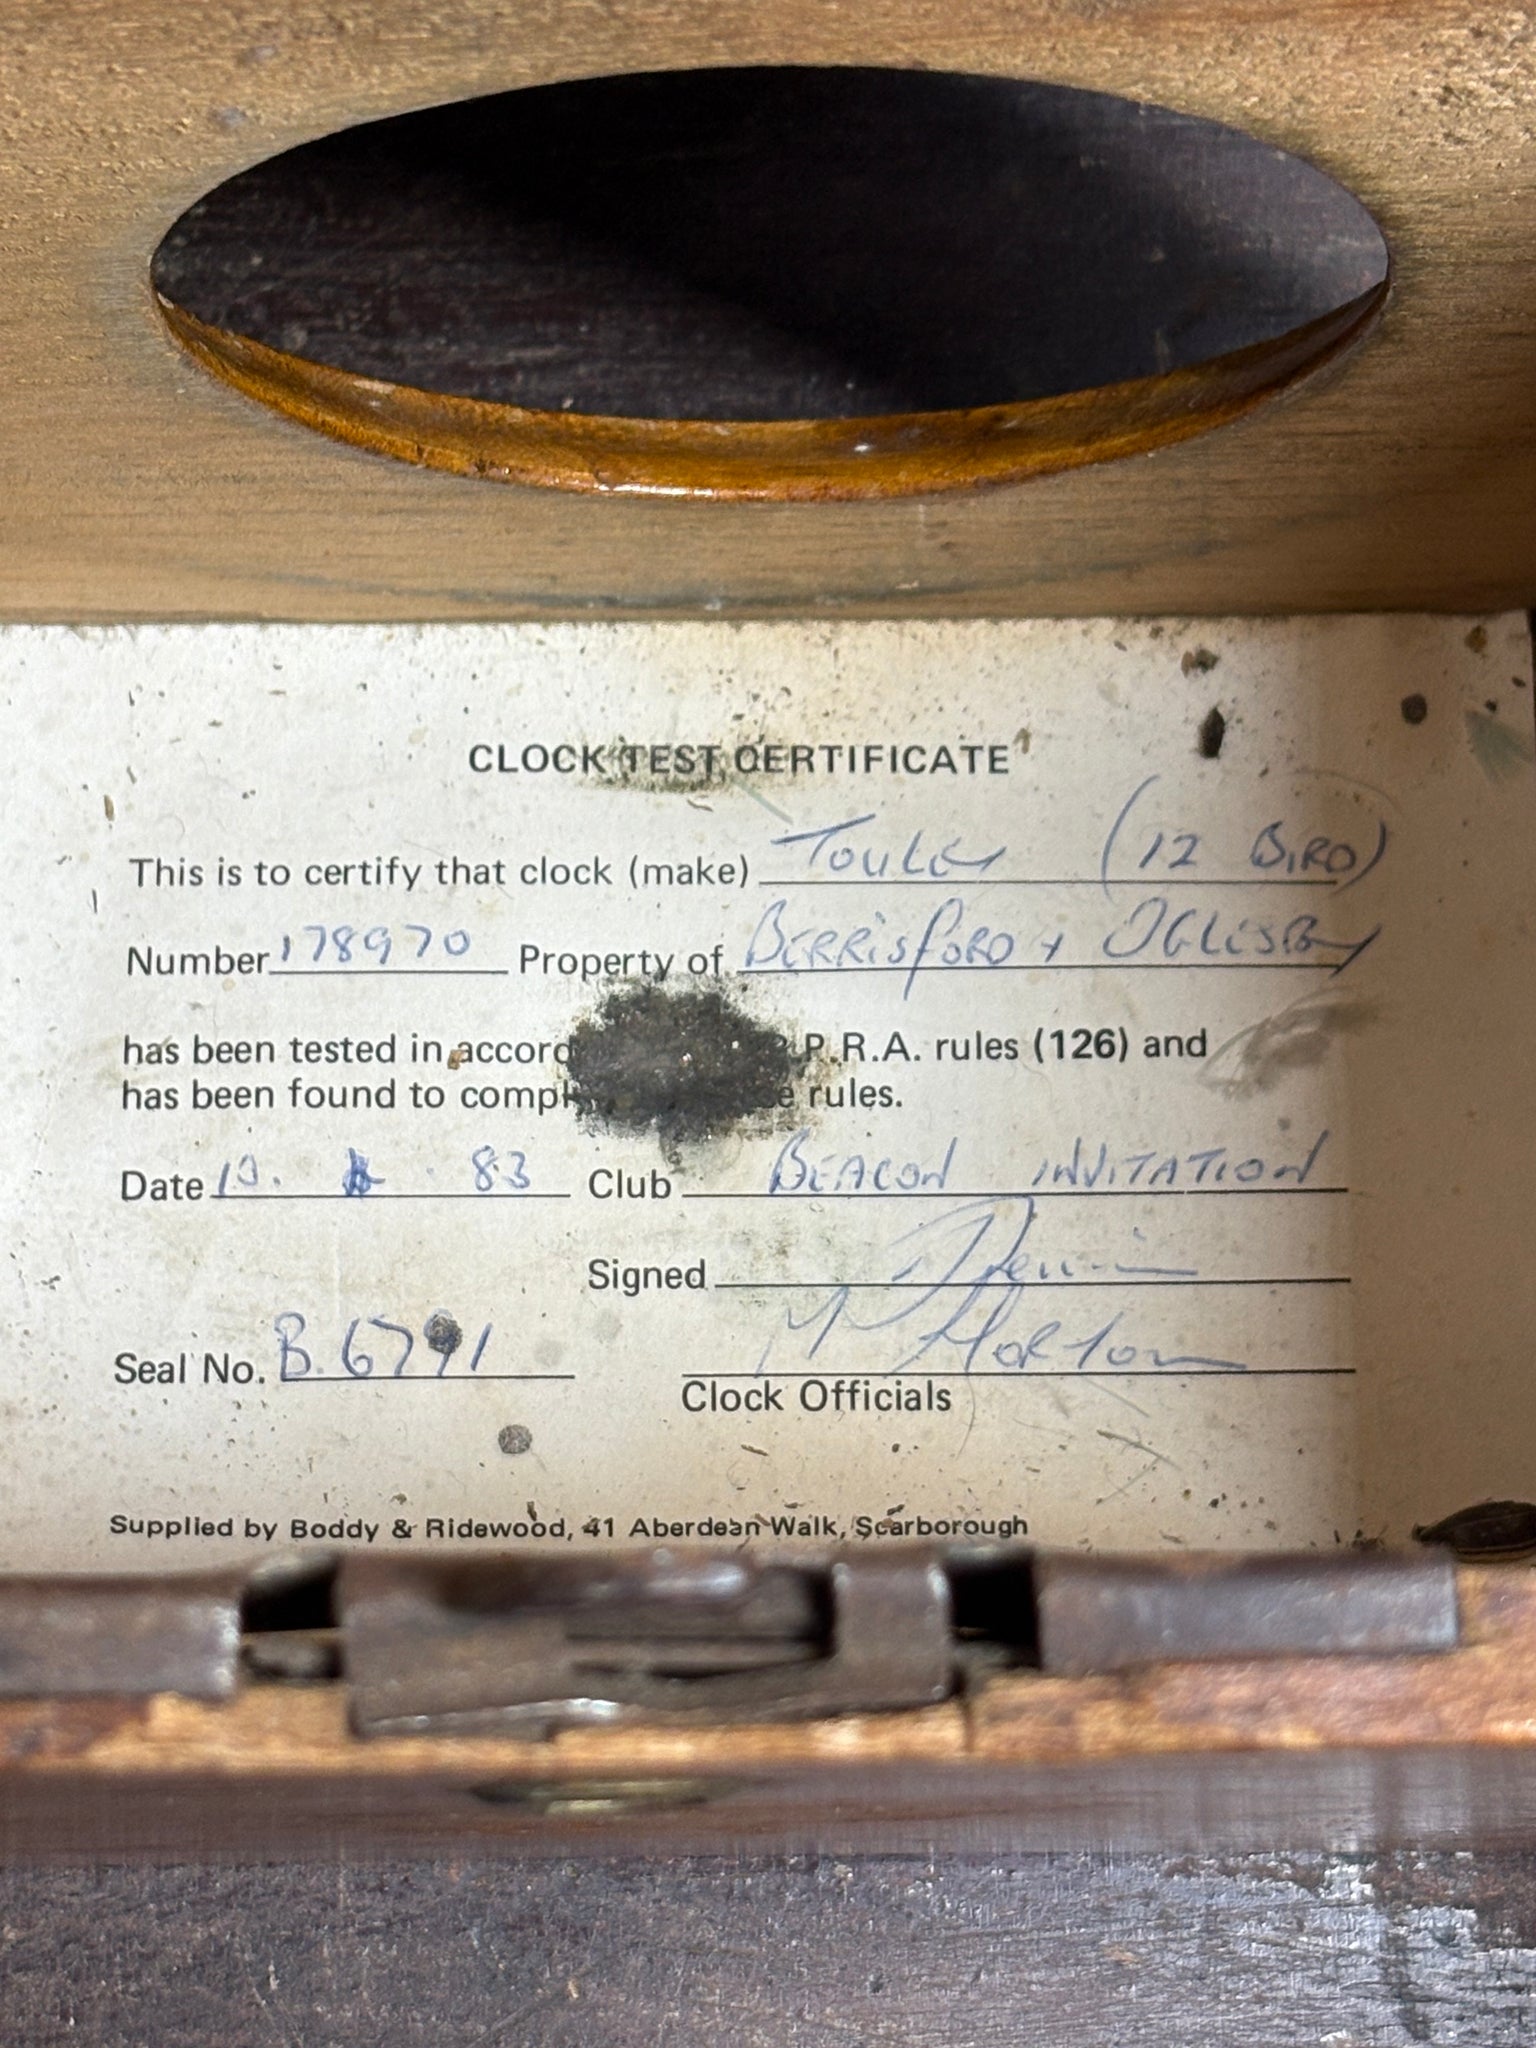 CLOCK TEST CERTIFICATE
This is to certify that clock (make) TOULEY (12 BIRD)
Number 178970 Property of BERRISFORD + OGLESBY
has been tested in accord P.R.A. rules (126) and
has been found to compl e rules.
Date 10. 83 Club BEACON INVITATION
Signed
Seal No. B.6791 Horton
Clock Officials
Supplied by Boddy & Ridewood, 41 Aberdean Walk, Scarborough